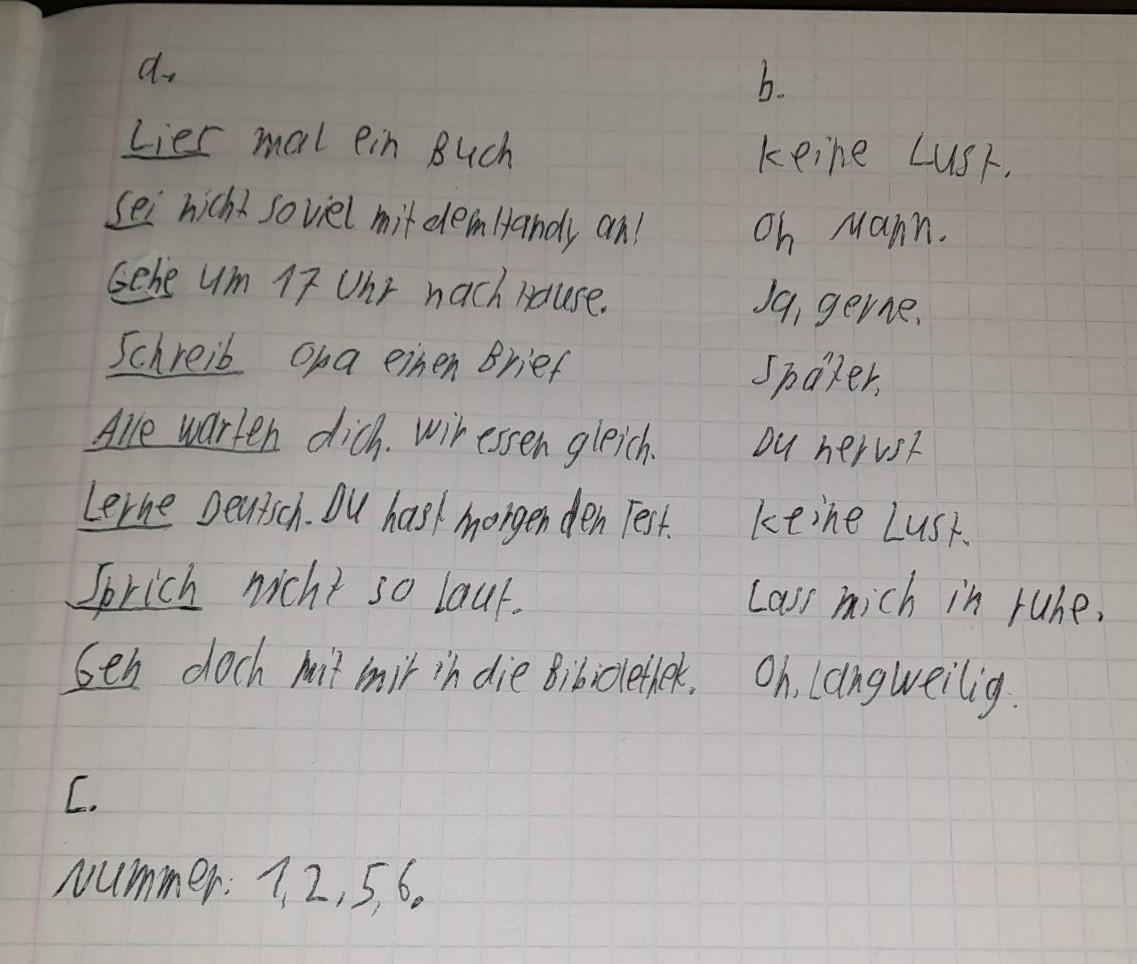 a.
Lies mal ein Buch
Sei nicht so viel mit dem Handy an!
Gehe um 17 Uhr nach Hause.
Schreib Opa einen Brief
Alle warten dich. Wir essen gleich.
Lerne Deutsch. Du hast morgen den Test.
Sprich nicht so laut.
Geh doch mit mir in die Bibiolethek.
b.
Keine Lust.
Oh Mann.
Ja, gerne.
Später.
Du nervst
Keine Lust.
Lass mich in ruhe.
Oh, Langweilig.
c.
Nummer: 1, 2, 5, 6.